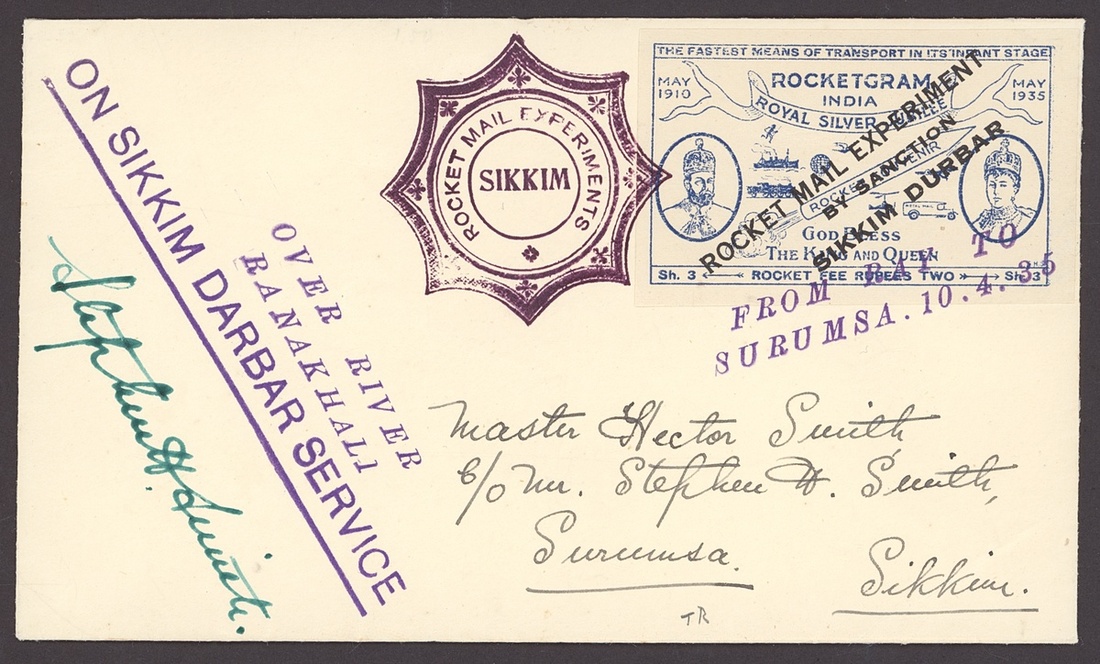 ON SIKKIM DARBAR SERVICE
OVER RIVER
RANAKHALI
Stephen H. Smith.
ROCKET MAIL EXPERIMENTS
SIKKIM
THE FASTEST MEANS OF TRANSPORT IN ITS INFANT STAGE
MAY 1910
ROCKETGRAM
INDIA
MAY 1935
ROYAL SILVER
ROCKET
GOD BLESS
THE KING AND QUEEN
Sh. 3 ROCKET FEE RUPEES TWO Sh. 3
ROCKET MAIL EXPERIMENT
BY SANCTION
SIKKIM DURBAR
FROM RAY TO
SURUMSA. 10.4.35
Master Hector Smith
c/o Mr. Stephen H. Smith,
Surumsa.
Sikkim.
TR